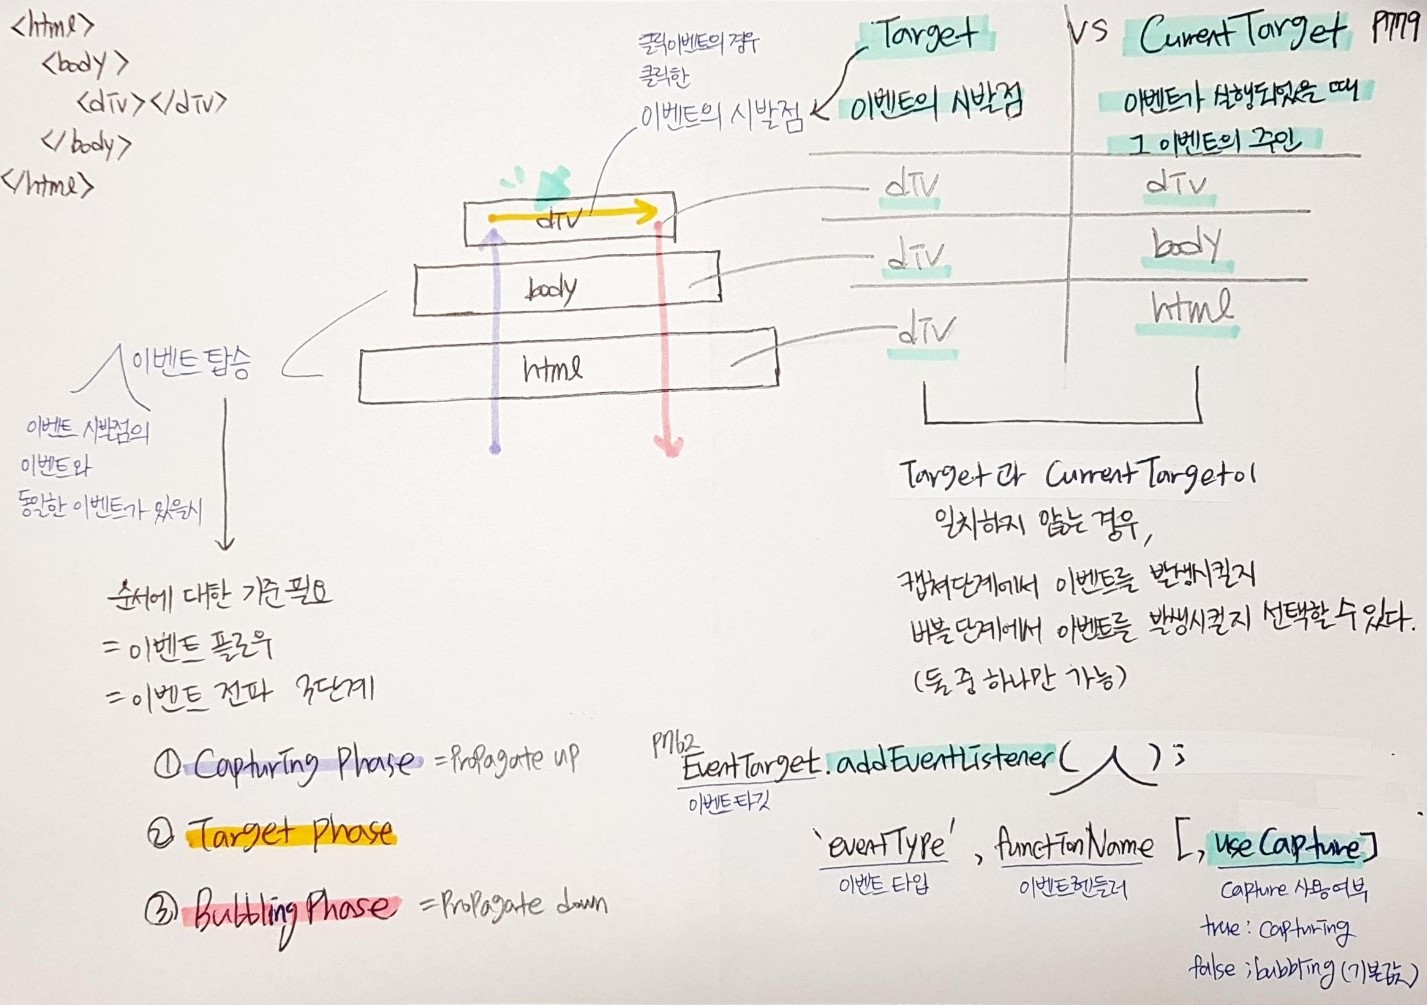 <html>
<body>
<div></div>
</body>
</html>
클릭이벤트의 경우
클릭한
이벤트의 시발점
Target
VS
CurrentTarget
P779
이벤트의 시발점
이벤트가 실행되었을 때
그 이벤트의 주인
div
div
div
body
div
html
div
body
html
이벤트 탑승
이벤트 시발점의
이벤트와
동일한 이벤트가 있을시
순서에 대한 기준 필요
= 이벤트 플로우
= 이벤트 전파 3단계
① Capturing Phase = Propagate up
② Target phase
③ Bubbling Phase = Propagate down
Target과 CurrentTarget이
일치하지 않는 경우,
캡쳐단계에서 이벤트를 발생시킬지
버블단계에서 이벤트를 발생시킬지 선택할 수 있다.
(둘 중 하나만 가능)
P762
EventTarget.addEventListener( );
이벤트타깃
'eventType', functionName [, useCapture]
이벤트 타입
이벤트헨들러
capture 사용여부
true : capturing
false ; bubbling (기본값)